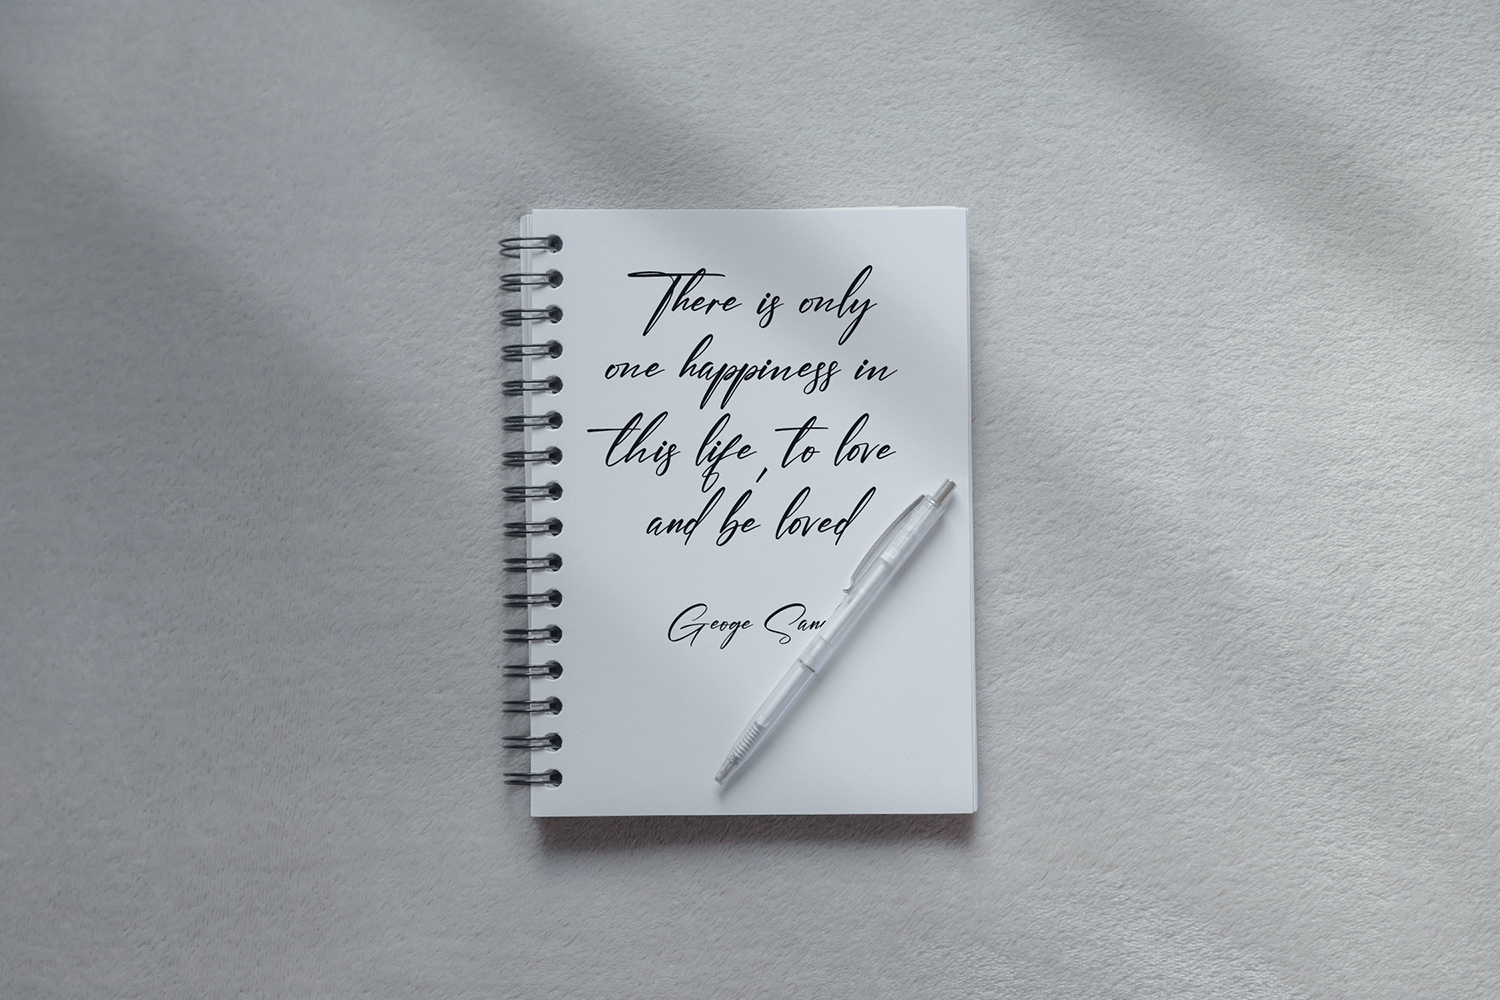 There is only
one happiness in
this life, to love
and be loved
Geoge